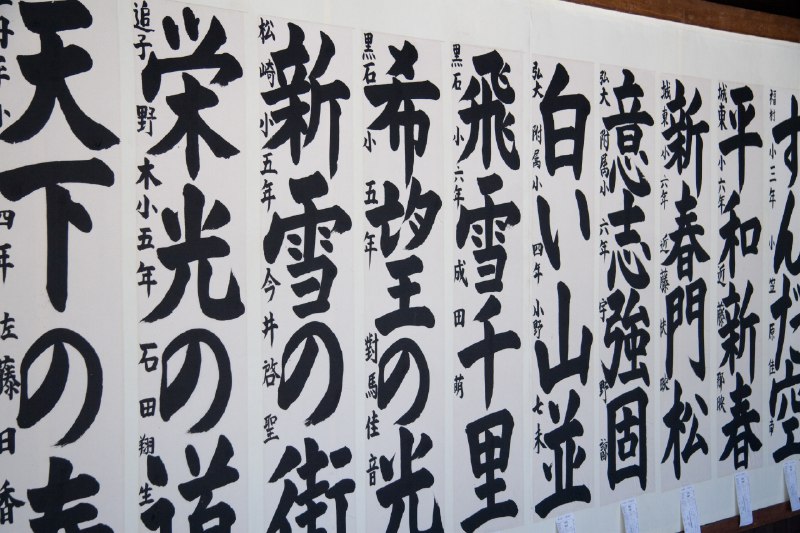 すんだ空
福村小三年 小笠原佳
平和新春
城東小六年 近藤
新春門松
城東小六年 近藤
意志強固
弘大附属小 六年 宇野
白い山並
弘大附属小 四年 小野七未
飛雪千里
黒石小 六年 成田萌
希望の光
黒石小 五年 對馬佳音
新雪の街
松崎小五年 今井啓聖
栄光の道
追子野木小五年 石田翔生
天下の
小 四年 藤田香